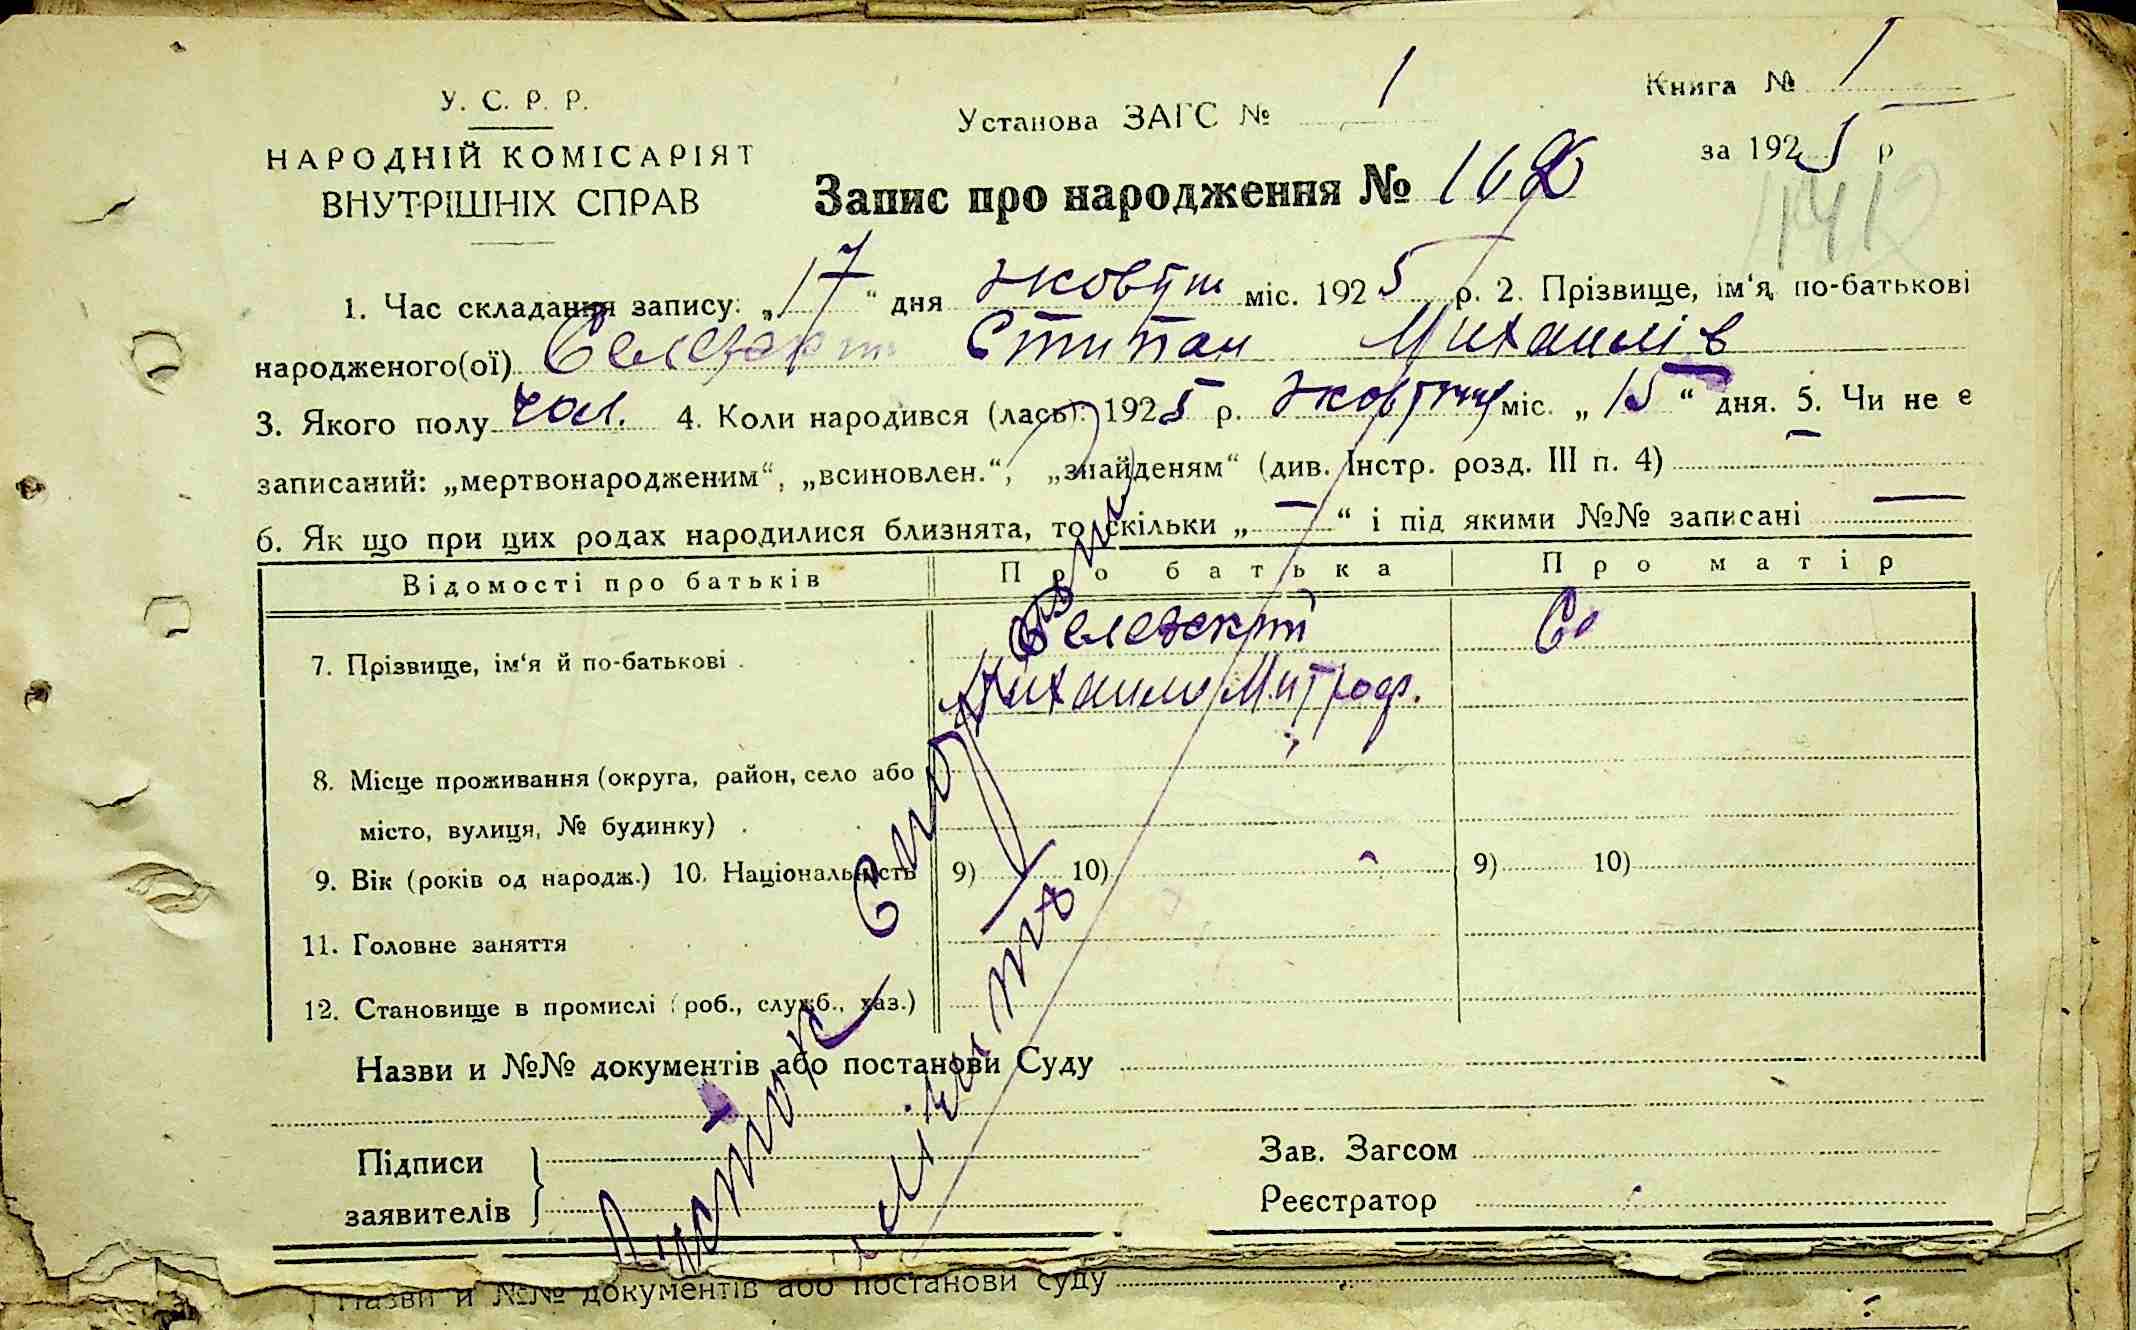 У. С. Р. Р.
НАРОДНІЙ КОМІСАРІЯТ
ВНУТРІШНІХ СПРАВ
Установа ЗАГС № 1
Книга № 1
за 1925 р
Запис про народження №
1. Час складання запису: „17“ дня жовтн міс. 1925 р. 2. Прізвище, ім‘я, по-батькові
народженого(ої) Степан Михаилів
3. Якого полу чол. 4. Коли народився (лась): 1925 р. жовтня міс. „15“ дня. 5. Чи не є
записаний: „мертвонародженим“, „всиновлен.“, „знайденям“ (див. Інстр. розд. III п. 4) —
6. Як що при цих родах народилися близнята, то скільки „—“ і під якими №№ записані —
Відомості про батьків Про батька Про матір
7. Прізвище, ім‘я й по-батькові . Михаило Митроф. Се
8. Місце проживання (округа, район, село або
місто, вулиця, № будинку) .
9. Вік (років од народж.) 10. Національність 9) 10) 9) 10)
11. Головне заняття
12. Становище в промислі (роб., служб., хаз.)
Назви и №№ документів або постанови Суду
Підписи
заявителів
Зав. Загсом
Реєстратор
Листок
Назви и №№ документів або постанови суду